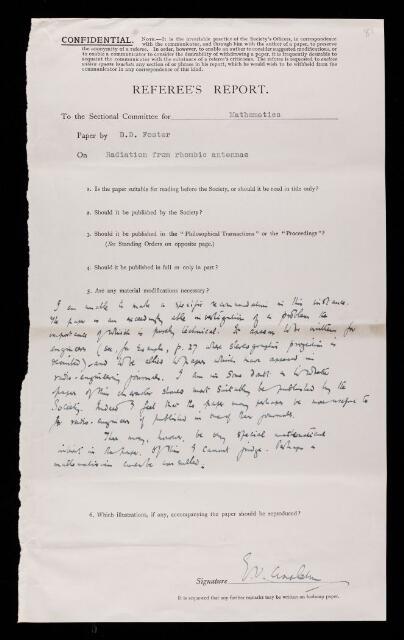 8
CONFIDENTIAL. NOTE.—It is the invariable practice of the Society's Officers, in correspondence
with the communicator, and through him with the author of a paper, to preserve
the anonymity of a referee. In order, however, to enable an author to consider suggested modifications, or
to enable a communicator to consider the desirability of withdrawing a paper, it is frequently desirable to
acquaint the communicator with the substance of a referee's criticisms. The referee is requested to enclose
within square brackets any section of or phrase in his report, which he would wish to be withheld from the
communicator in any correspondence of this kind.
REFEREE'S REPORT.
To the Sectional Committee for Mathematics
Paper by D.D. Foster
On Radiation from rhombic antennae
1. Is the paper suitable for reading before the Society, or should it be read in title only?
2. Should it be published by the Society?
3. Should it be published in the "Philosophical Transactions" or the "Proceedings"?
(See Standing Orders on opposite page.)
4. Should it be published in full or only in part?
5. Are any material modifications necessary?
I am unable to make a specific recommendation in this instance.
The paper is an exceedingly able investigation of a problem the
importance of which is purely technical. It appears to be written for
engineers (see, for example, p. 27 where stereographic projection is
described) and to be allied to papers which have appeared in
radio-engineering journals. I am in some doubt as to whether
a paper of this character should most suitably be published by the
Society. Indeed I feel that the paper may perhaps be more useful to
radio-engineers if published in one of their journals.
There may, however, be very special mathematical
interest in the paper. Of this I cannot judge. Perhaps a
mathematician could be consulted.
6. Which illustrations, if any, accompanying the paper should be reproduced?
Signature E.V. Appleton
It is requested that any further remarks may be written on foolscap paper.